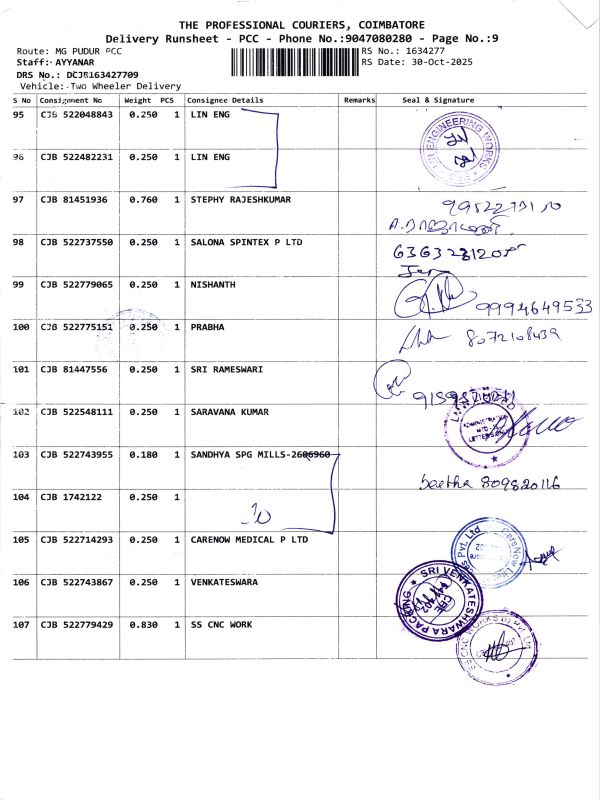 THE PROFESSIONAL COURIERS, COIMBATORE
Delivery Runsheet - PCC - Phone No.:9047080280 - Page No.:9
Route: MG PUDUR PCC RS No.: 1634277
Staff: AYYANAR RS Date: 30-Oct-2025
DRS No.: DCJB163427709
Vehicle: Two Wheeler Delivery
S No Consignment No Weight PCS Consignee Details Remarks Seal & Signature
95 CJB 522048843 0.250 1 LIN ENG
LIN ENGINEERING WORKS
96 CJB 522482231 0.250 1 LIN ENG
97 CJB 81451936 0.760 1 STEPHY RAJESHKUMAR
98 CJB 522737550 0.250 1 SALONA SPINTEX P LTD
99 CJB 522779065 0.250 1 NISHANTH 9994649533
100 CJB 522775151 0.250 1 PRABHA 8072108439
101 CJB 81447556 0.250 1 SRI RAMESWARI
102 CJB 522548111 0.250 1 SARAVANA KUMAR
103 CJB 522743955 0.180 1 SANDHYA SPG MILLS-2606960
809820116
104 CJB 1742122 0.250 1
105 CJB 522714293 0.250 1 CARENOW MEDICAL P LTD
106 CJB 522743867 0.250 1 VENKATESWARA
SRI VENKATESHWARA PACKING
107 CJB 522779429 0.830 1 SS CNC WORK